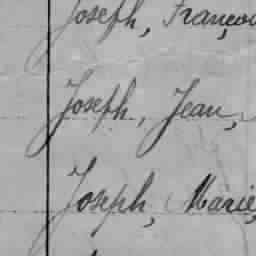 Joseph, Françoi
Joseph, Jean,
Joseph, Marie,